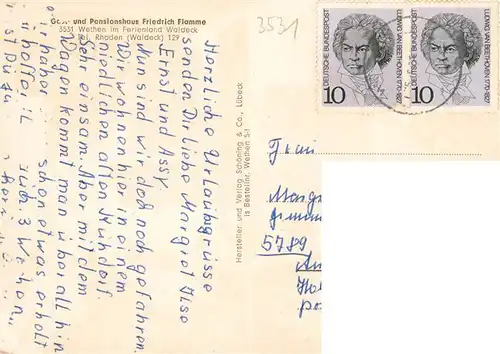 Gast- und Pensionshaus Friedrich Flamme
3531 Wethen im Ferienland Waldeck
Tel. Rhoden (Waldeck) 129
3531
DEUTSCHE BUNDESPOST
LUDWIG VAN BEETHOVEN 1770-1827
10
DEUTSCHE BUNDESPOST
LUDWIG VAN BEETHOVEN 1770-1827
10
Herzliche Urlaubsgrüsse
senden Dir liebe Margret Ilse
Ernst und Assy.
Nun sind wir doch noch gefahren.
Wir wohnen hier in einem
niedlichen alten Kuhdorf.
Sehr einsam. Aber mit dem
Wagen kommt man überall hin
schon etwas erholt
3 Wochen
Hersteller und Verlag Schöning & Co., Lübeck
Bestellnr. Wethen S-1
Frau
5789